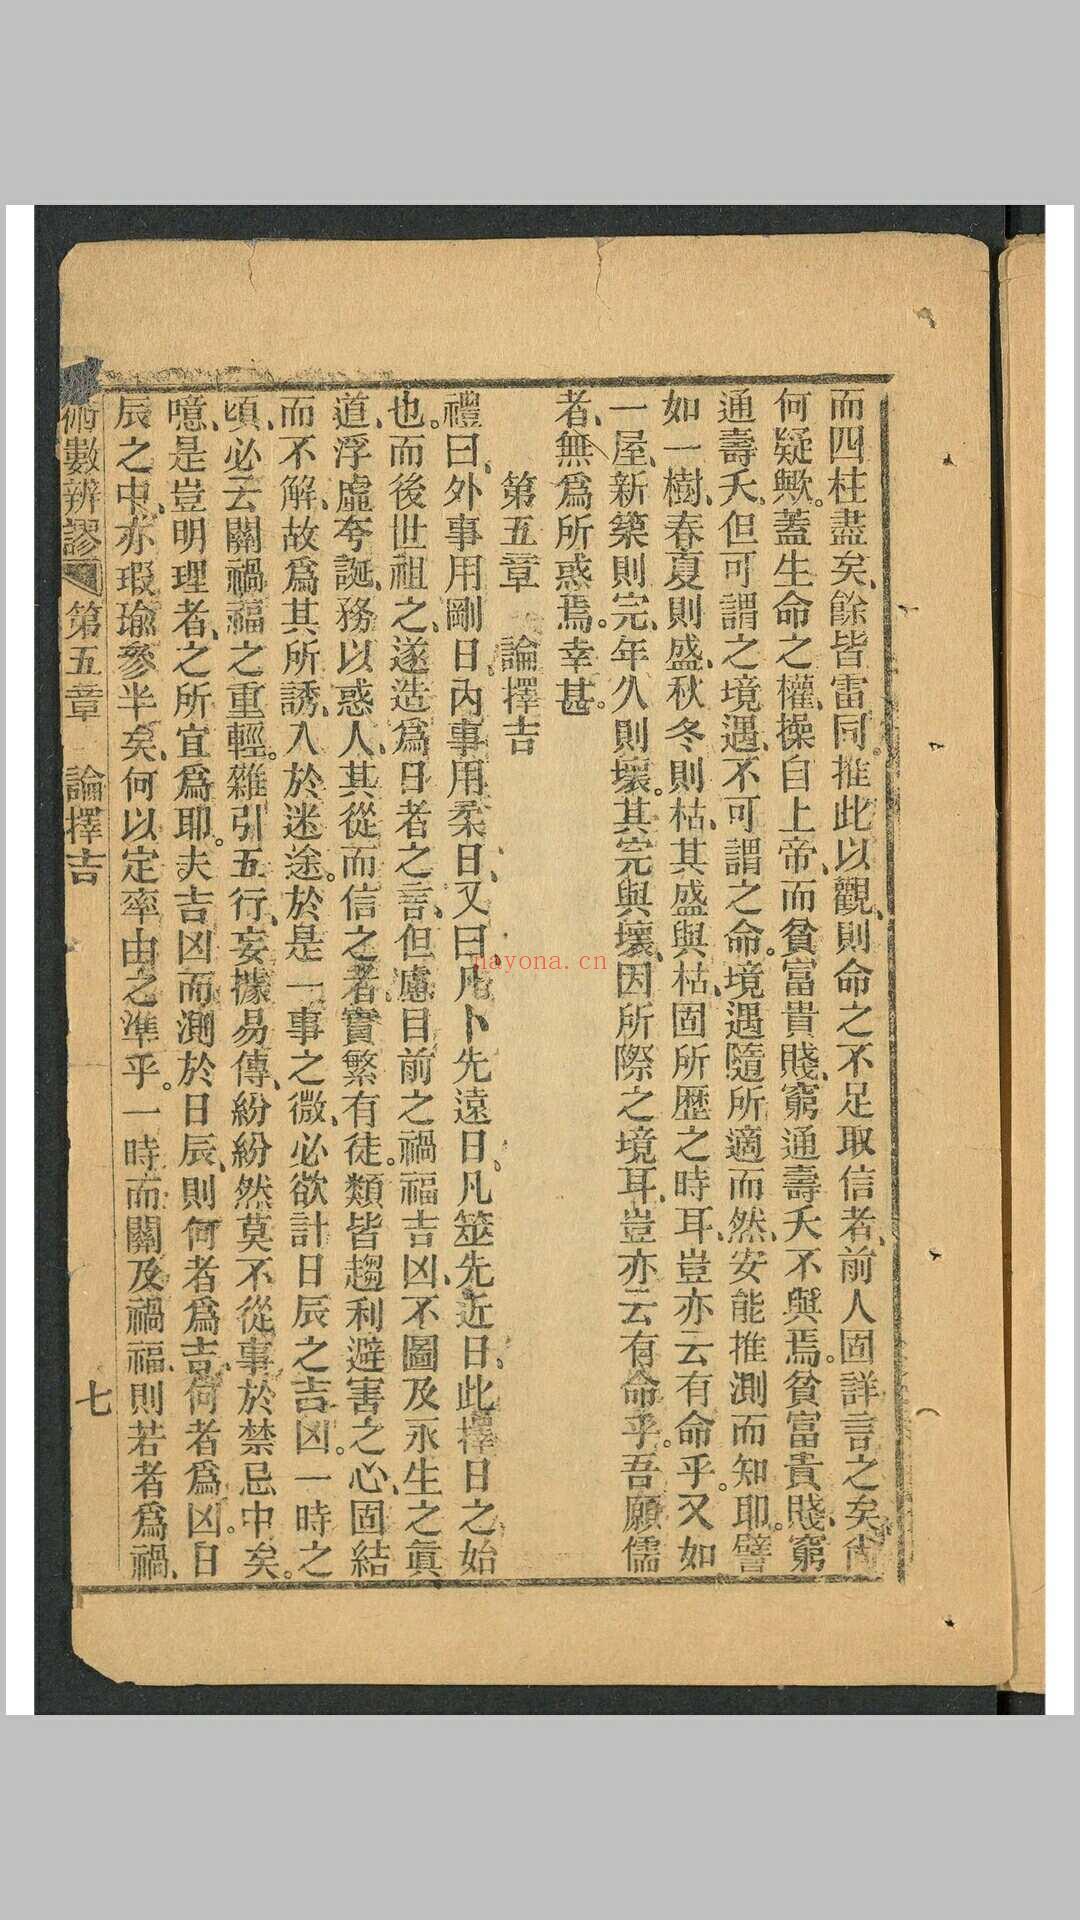 而四柱盡矣、餘皆雷同。推此以觀、則命之不足取信者、前人固詳言之矣、尙
何疑歟。蓋生命之權、操自上帝、而貧富貴賤、窮通壽夭不與焉。貧富貴賤、窮
通壽夭、但可謂之境遇、不可謂之命。境遇隨所適而然、安能推測而知耶。譬
如一樹、春夏則盛、秋冬則枯、其盛與枯、固所歷之時耳、豈亦云有命乎。又如
一屋、新築則完、年久則壞。其完與壞、因所際之境耳、豈亦云有命乎。吾願儒
者、無爲所惑焉。幸甚。
第五章 論擇吉
禮曰、外事用剛日、內事用柔日、又曰、凡卜先遠日。凡筮先近日、此擇日之始
也。而後世祖之、遂造爲日者之言、但慮目前之禍福吉凶、不圖及永生之眞
道、浮虛夸誕、務以惑人、其從而信之者、實繁有徒。類皆趨利避害之心、固結
而不解、故爲其所誘、入於迷途。於是一事之微、必欲計日辰之吉凶。一時之
頃、必云關禍福之重輕。雜引五行、妄據易傳、紛紛然莫不從事於禁忌中矣。
噫、是豈明理者、之所宜爲耶。夫吉凶而測於日辰、則何者爲吉、何者爲凶。日
辰之中、亦瑕瑜參半矣、何以定率由之準乎。一時而關及禍福、則若者爲禍、
術數辨謬 第五章 論擇吉 七
nayona.cn